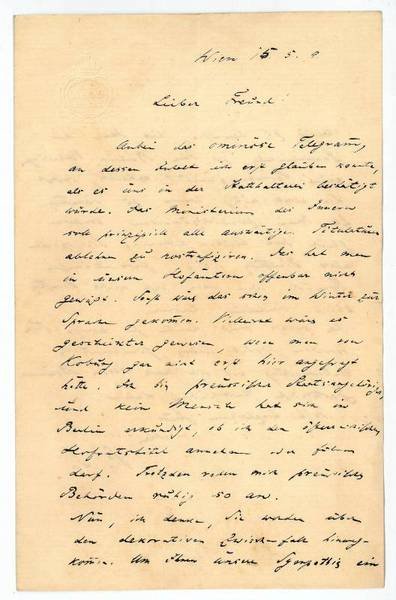 Wien 15 5. 9
Lieber Freund!
Anbei das ominöse Telegramm,
an dessen Inhalt ich erst glauben konnte,
als es uns in der Statthalterei bestätigt
wurde. Das Ministerium des Innern
soll prinzipiell alle auswärtigen Titulaturen
ablehnen zu . Das hat man
in diesen Hofämtern offenbar nicht
gewußt. Sonst wäre das schon im Winter zur
Sprache gekommen. Vielleicht wäre es
gescheiter gewesen, wenn man von
Koburg gar nicht erst hier angefragt
hätte. Ich bin preussischer Staatsangehöriger,
und kein Mensch hat sich in
Berlin erkündigt, ob ich den österreichischen
annehmen oder führen
darf. Trotzdem reden mich preussische
Behörden ruhig so an.
Nun, ich denke, Sie werden über
den dekorativen Zwischenfall hinweg-
kommen. Um Ihnen unsere Sympathie ein